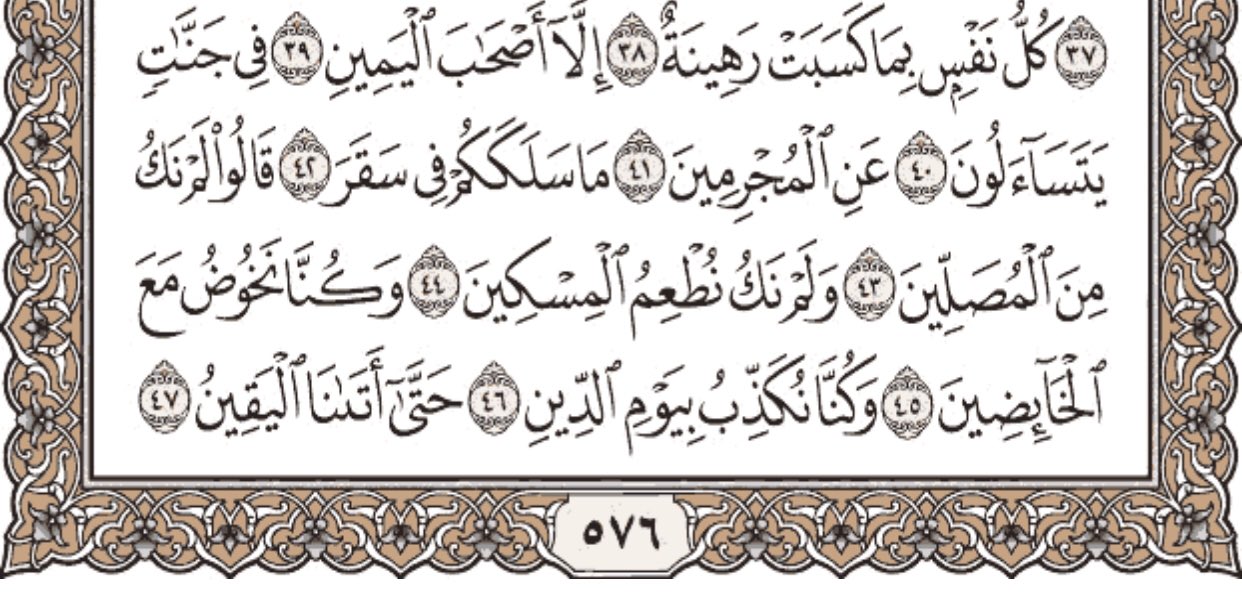 ٣٧ كُلُّ نَفْسٍۭ بِمَا كَسَبَتْ رَهِينَةٌ ٣٨ إِلَّآ أَصْحَٰبَ ٱلْيَمِينِ ٣٩ فِى جَنَّٰتٍ
يَتَسَآءَلُونَ ٤٠ عَنِ ٱلْمُجْرِمِينَ ٤١ مَا سَلَكَكُمْ فِى سَقَرَ ٤٢ قَالُوا۟ لَمْ نَكُ
مِنَ ٱلْمُصَلِّينَ ٤٣ وَلَمْ نَكُ نُطْعِمُ ٱلْمِسْكِينَ ٤٤ وَكُنَّا نَخُوضُ مَعَ
ٱلْخَآئِضِينَ ٤٥ وَكُنَّا نُكَذِّبُ بِيَوْمِ ٱلدِّينِ ٤٦ حَتَّىٰٓ أَتَىٰنَا ٱلْيَقِينُ ٤٧
٥٧٦